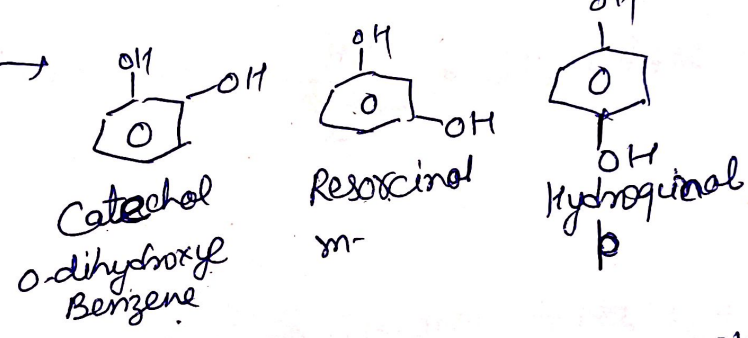 OH
OH
OH
OH
OH
OH
Catechol
o-dihydroxye
Benzene
Resorcinol
m-
Hydroquinol
p